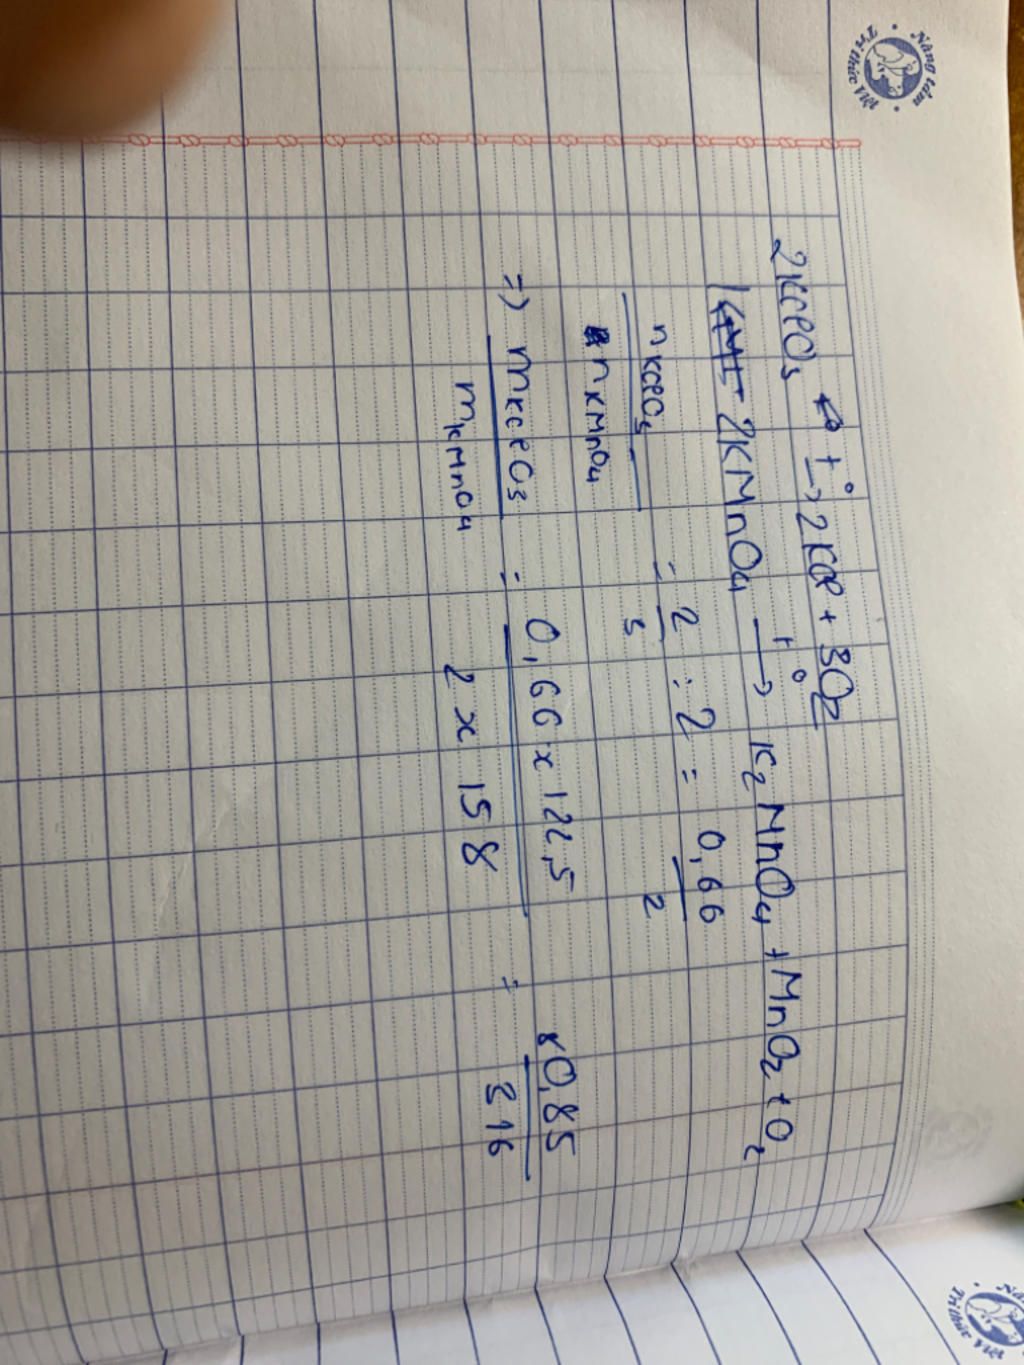 Nâng tầm
Tri thức Việt
2KClO3 t° → 2KCl + 3O2
2KMnO4 t° → K2MnO4 + MnO2 + O2
nKClO3 / nKMnO4 = 2/3 : 2 = 0,66/2
=> mKClO3 / mKMnO4 = 0,66 x 122,5 / 2 x 158 = 80,85 / 316
Tri thức Việt